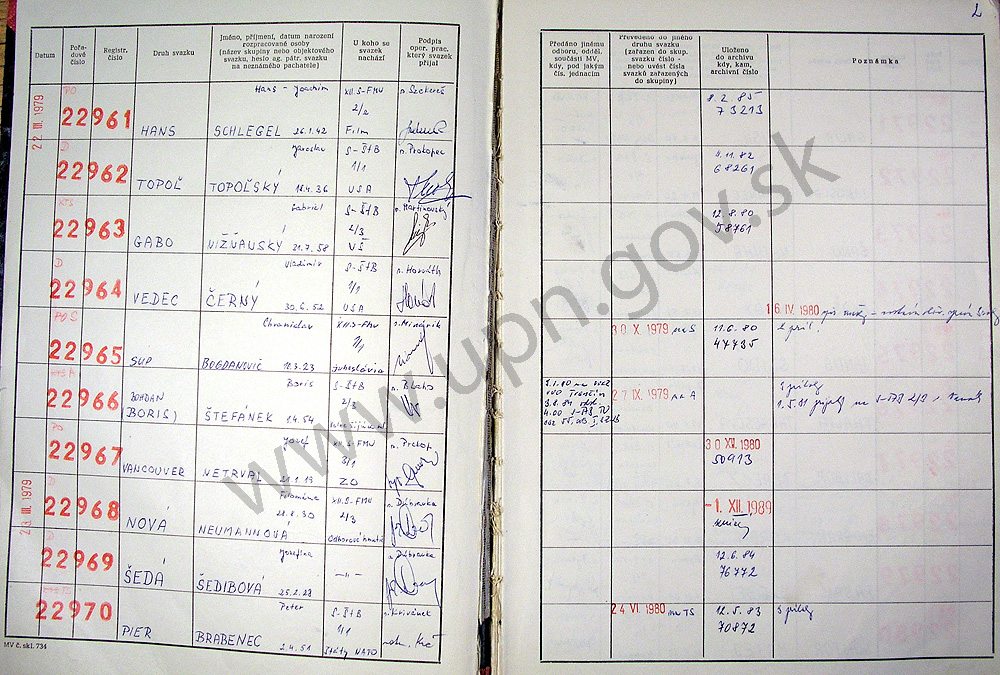 L
Datum
Pořadové číslo
Registr. číslo
Druh svazku
Jméno, příjmení, datum narození rozpracované osoby (název skupiny nebo objektového svazku, heslo ag. pátr. svazku na neznámého pachatele)
U koho se svazek nachází
Podpis oper. prac. který svazek přijal
Předáno jinému odboru, odděl. součásti MV, kdy, pod jakým čís. jednacím
Převedeno do jiného druhu svazku (zařazen do skup. svazku číslo - nebo uvést čísla svazků zařazených do skupiny)
Uloženo do archivu kdy, kam, archivní číslo
Poznámka
22 III. 1979
PO
22961
HANS
Hans - Joachim
SCHLEGEL 26.1.42
XII.S-FMV
2/2
Film
8.2.85
73213
D
22962
TOPOĽ
Jaroslav
TOPOĽSKÝ 18.4.36
S-ŠtB
1/1
USA
n. Prokopec
4.11.82
68261
KTS
22963
GABO
Gabriel
NIŽŇANSKÝ 21.7.58
S-ŠtB
2/3
VŠ
n. Martinovský
12.8.80
58761
D
22964
VEDEC
Vladimír
ČERNÝ
30.6.52
S-ŠtB
1/1
USA
n. Horváth
16. IV. 1980
PO S
22965
SUP
Chranislav
BOGDANOVIČ 12.3.23
XII.S-FMV
Juhoslávia
30 X. 1979
11.6.80
47735
22966
BOHDAN
(BORIS)
Boris
ŠTEFÁNEK 1.4.54
S-ŠtB
2/3
n. Blaho
27 IX. 1979 na A
PO
22967
VANCOUVER
Jozef
NETRVAL 21.1.13
XII.S-FMV
3/1
ZO
n. Prokop
30 XII. 1980
50913
23 III. 1979
D
22968
NOVÁ
Filoména
28.8.30
NEUMANNOVÁ
XII.S-FMV
2/3
n. Dúbravka
- 1. XII. 1989
D
22969
ŠEDÁ
Jozefína
ŠEDIBOVÁ
25.2.28
—"—
n. Dúbravka
12.6.84
76772
22970
PIER
Peter
BRABENEC
2.4.51
S-ŠtB
1/1
štáty NATO
n. Krivánek
24 VI. 1980 na TS
12.5.83
70872
3 prílohy
MV č. skl. 734
www.upn.gov.sk